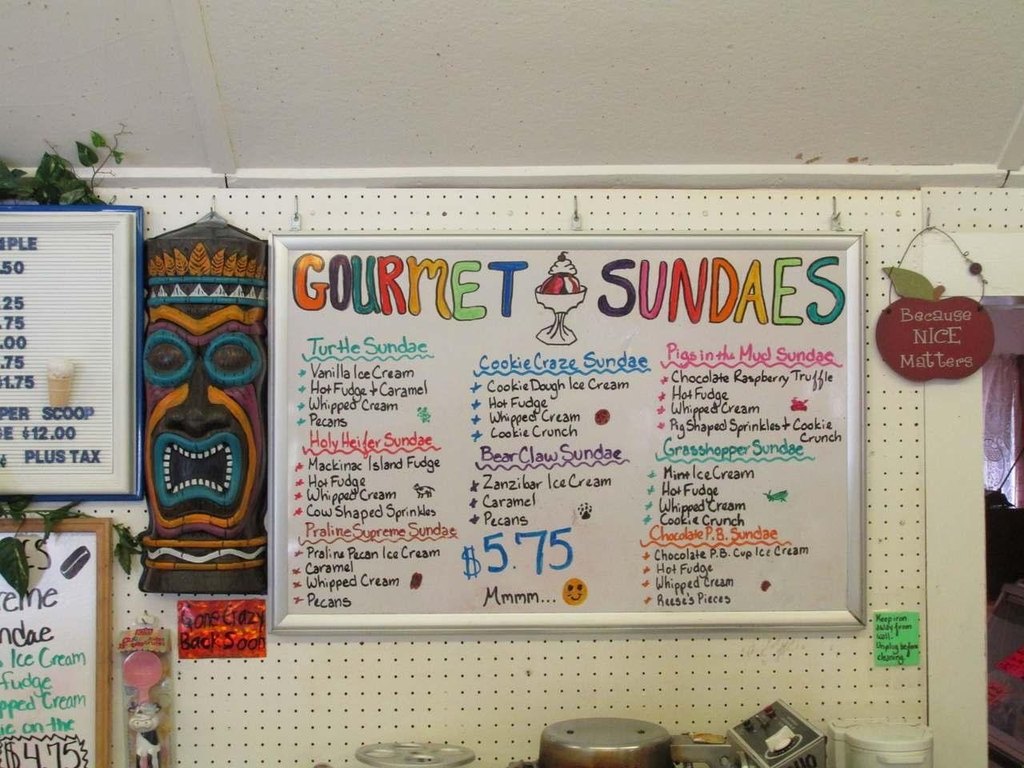 GOURMET SUNDAES
Turtle Sundae
Vanilla Ice Cream
Hot Fudge + Caramel
Whipped Cream
Pecans
Holy Heifer Sundae
Mackinac Island Fudge
Hot Fudge
Whipped Cream
Cow Shaped Sprinkles
Praline Supreme Sundae
Praline Pecan Ice Cream
Caramel
Whipped Cream
Pecans
Cookie Craze Sundae
Cookie Dough Ice Cream
Hot Fudge
Whipped Cream
Cookie Crunch
Bear Claw Sundae
Zanzibar Ice Cream
Caramel
Pecans
$5.75
Mmmm...
Pigs in the Mud Sundae
Chocolate Raspberry Truffle
Hot Fudge
Whipped Cream
Pig Shaped Sprinkles + Cookie
Crunch
Grasshopper Sundae
Mint Ice Cream
Hot Fudge
Whipped Cream
Cookie Crunch
Chocolate P.B. Sundae
Chocolate P.B. Cup Ice Cream
Hot Fudge
Whipped Cream
Reese's Pieces
Because
NICE
Matters
Keep iron
away from
wall.
Unplug before
cleaning.
Gone Crazy
Back Soon
.50
.25
.75
.00
.75
PER SCOOP
$12.00
PLUS TAX
Ice Cream
fudge
Cream
on the
$4.75